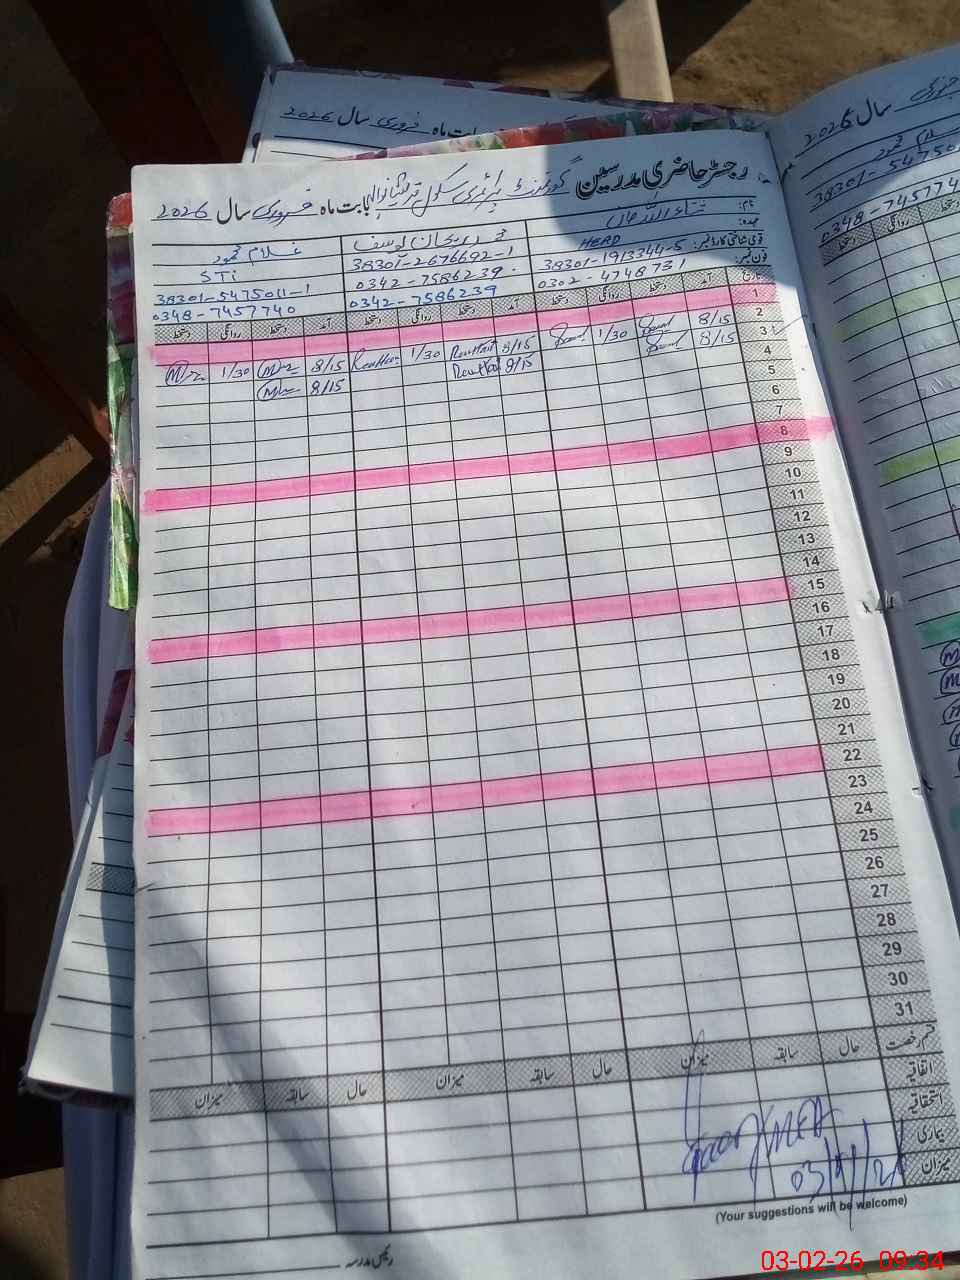 رجسٹر حاضری مدرسین گورنمنٹ پرائمری سکول بابت ماہ فروری سال 2026
نام: ثناء اللہ خان
محمد ریحان یوسف
غلام محمود
عہدہ: HEAD
STi
قومی شناختی کارڈ نمبر: 38301-1913344-5
38301-2676692-1
38301-5475011-1
فون نمبر: 0302-4748731
0342-7586239
0342-7586239
0348-7457740
تاریخ آمد دستخط روانگی دستخط آمد دستخط روانگی دستخط آمد دستخط روانگی دستخط
1
2 8/15 1/30 8/15 1/30 8/15 1/30
3 8/15 8/15 8/15
4
5
6
7
8
9
10
11
12
13
14
15
16
17
18
19
20
21
22
23
24
25
26
27
28
29
30
31
قسم رخصت حال سابقہ میزان حال سابقہ میزان حال سابقہ میزان
اتفاقیہ
استحقاقیہ
بیماری
میزان
(Your suggestions will be welcome)
رئیس مدرسہ
بابت ماہ فروری سال 2026
جنوری سال 2026
0348-7457740
03-02-26 09:34